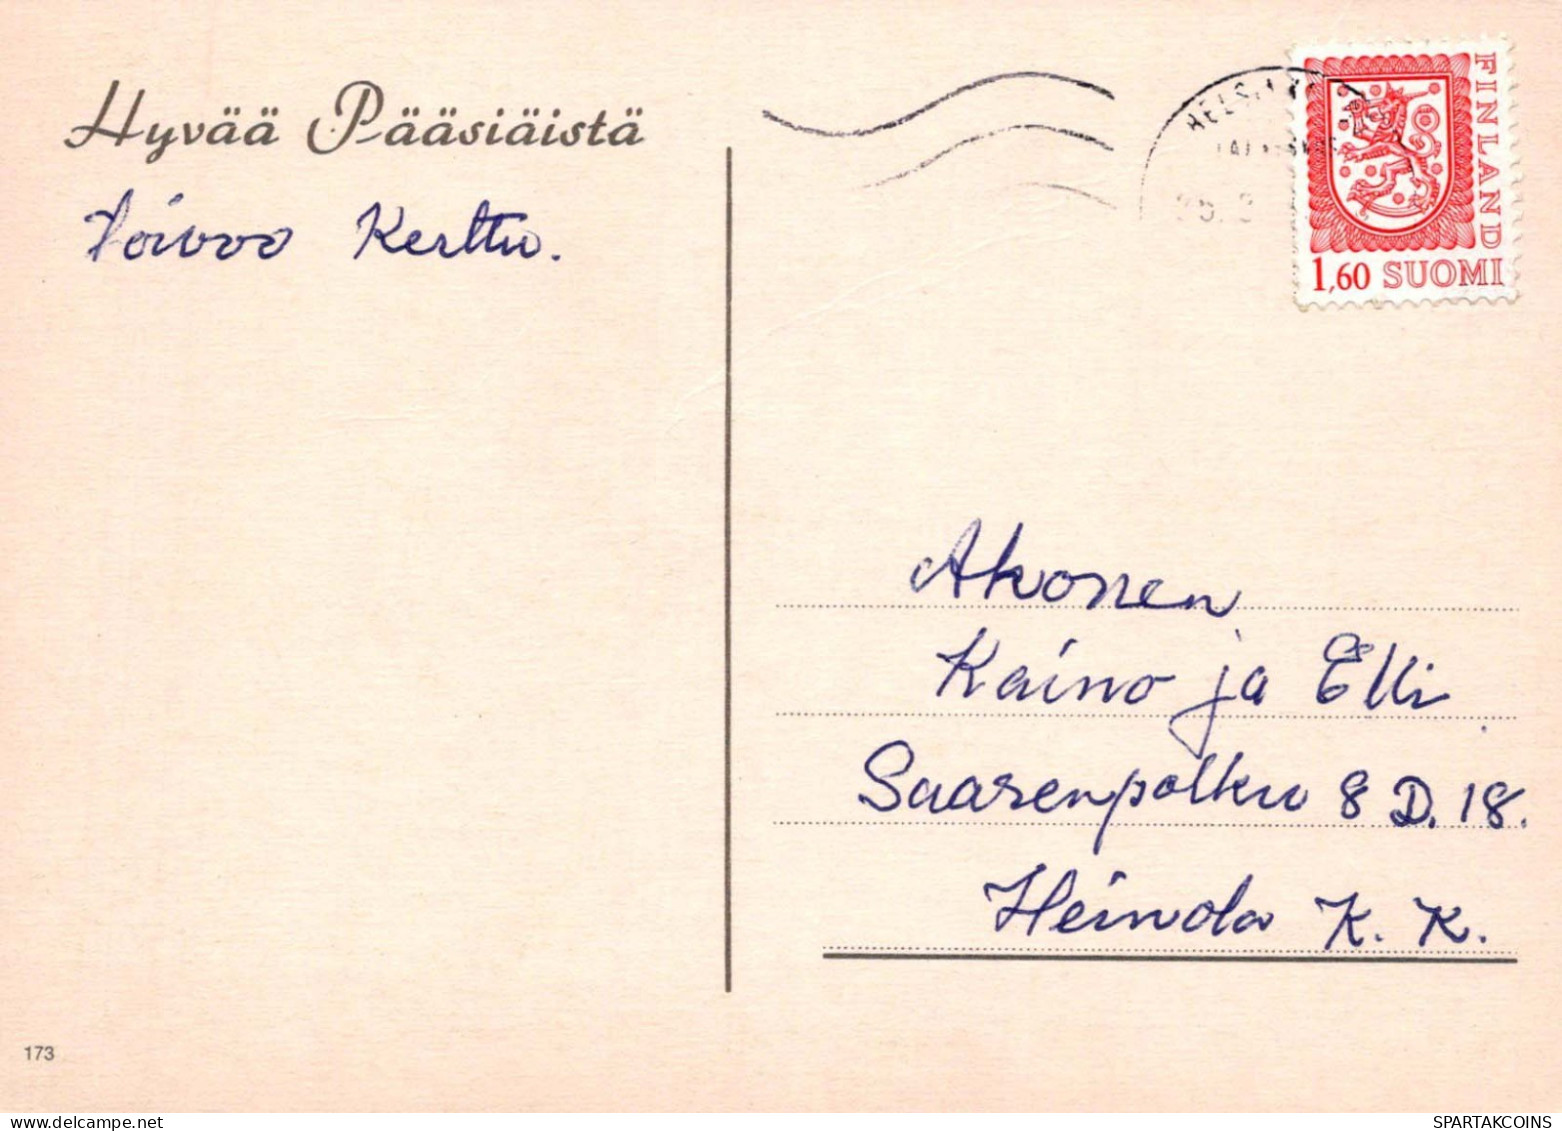 Hyvää Pääsiäistä
Toivoo Kerttu.
FINLAND
1,60 SUOMI
Ahonen
Kaino ja Elli
Saarenpolku 8 D. 18.
Heinola K. K.
173
delcampe.net
SPARTAKCOINS